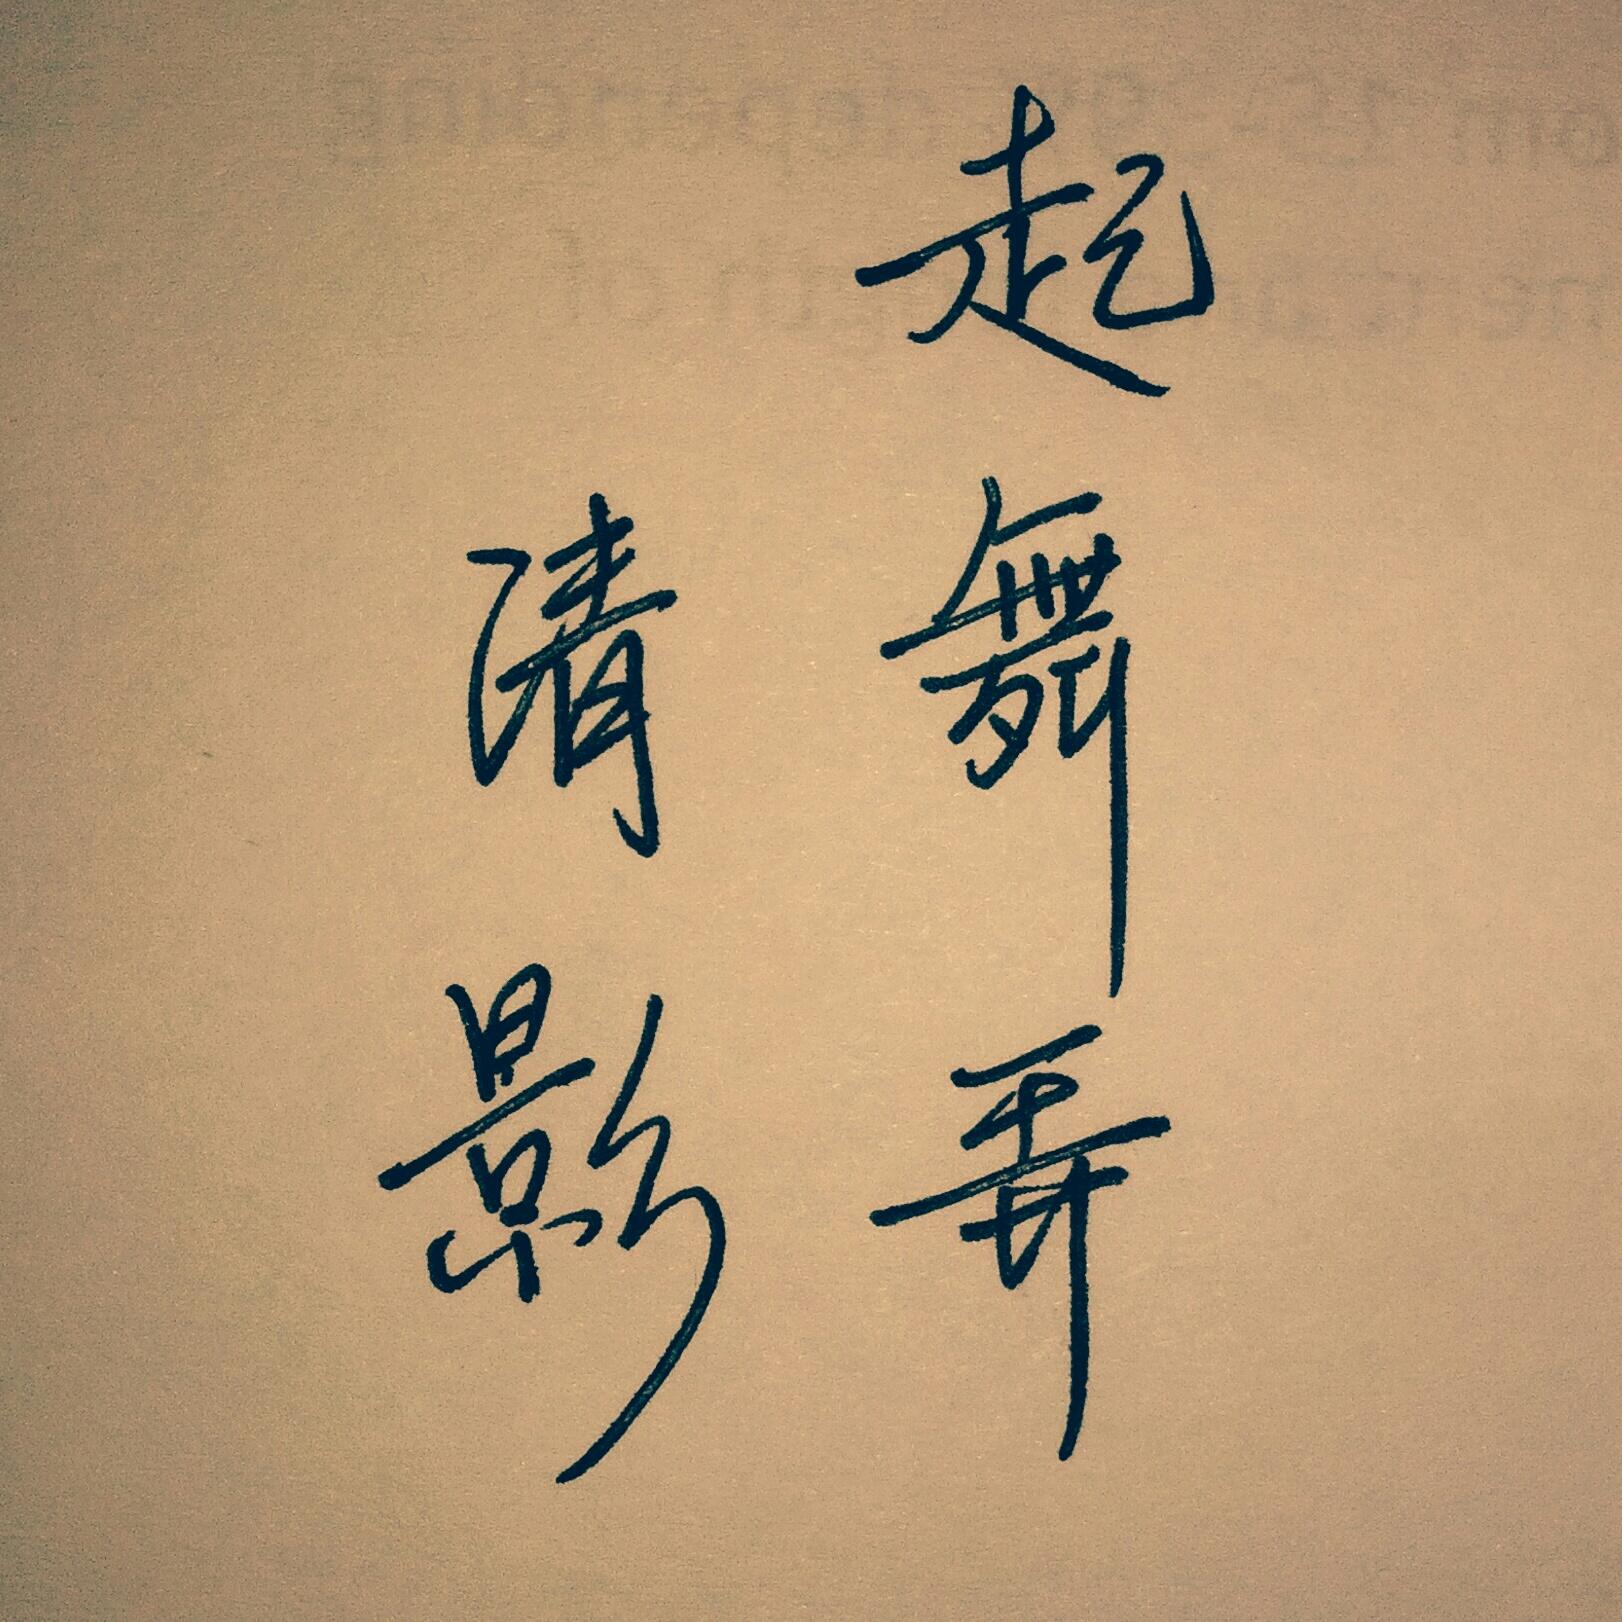 起舞弄
清影